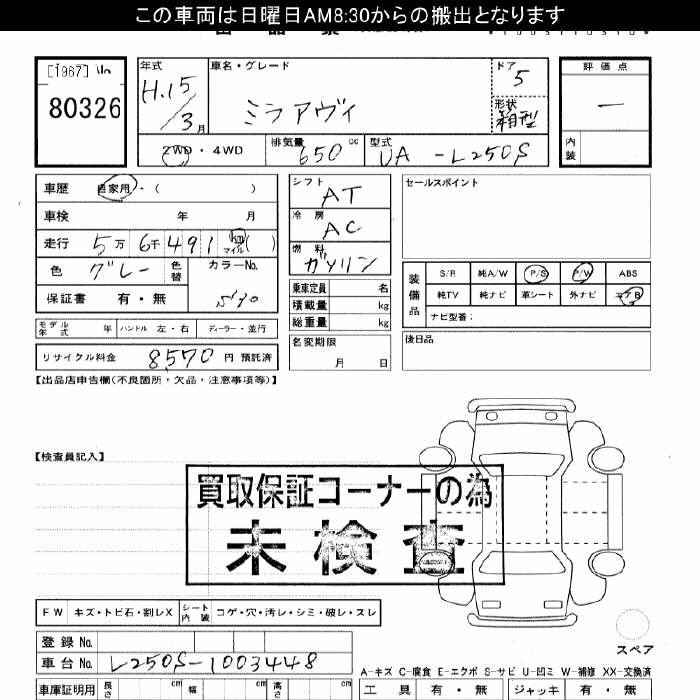 この車両は日曜日AM8:30からの搬出となります
[1967]
80326
年式 H.15/3月
車名・グレード ミラアヴィ
ドア 5
形状 箱型
評価点 ー
内装
2WD・4WD
排気量 650cc
型式 UA-L250S
車歴 自家用・( )
車検 年 月
走行 5万6千491 km マイル ( )
色 グレー 色替 カラーNo. S40
保証書 有・無
シフト AT
冷房 AC
燃料 ガソリン
乗車定員 名
積載量 kg
総重量 kg
セールスポイント
装備品 S/R 純A/W P/S P/W ABS
純TV 純ナビ 革シート 外ナビ エアB
ナビ型番:
モデル年式 年 ハンドル 左・右 ディーラー・並行
名変期限 月 日
後日品
リサイクル料金 8570 円 預託済
【出品店申告欄(不良箇所・欠品・注意事項等)】
【検査員記入】
買取保証コーナーの為
未検査
FW キズ・トビ石・割レX シート内装 コゲ・穴・汚レ・シミ・破レ・スレ
スペア
登録No.
車台No. L250S-1003448
A-キズ C-腐食 E-エクボ S-サビ U-凹ミ W-補修 XX-交換済
車庫証明用 長さ cm 幅 cm 高さ cm
工具 有・無 ジャッキ 有・無